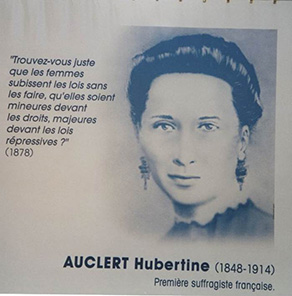 "Trouvez-vous juste
que les femmes
subissent les lois sans
les faire, qu'elles soient
mineures devant
les droits, majeures
devant les lois
répressives ?"
(1878)
AUCLERT Hubertine (1848-1914)
Première suffragiste française.